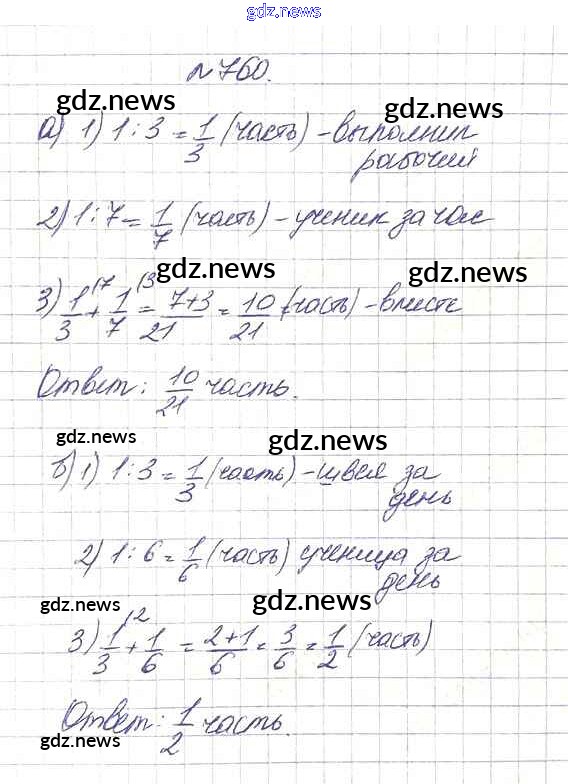 gdz.news
№760.
gdz.news
gdz.news
а) 1) 1:3 = 1/3 (часть) - выполнил
рабочий
2) 1:7 = 1/7 (часть) - ученик за час
gdz.news
gdz.news
3) 1/3 (7 + 1/7 (3 = 7+3/21 = 10/21 (часть) - вместе
Ответ: 10/21 часть.
gdz.news
gdz.news
б) 1) 1:3 = 1/3 (часть) - швея за
день
2) 1:6 = 1/6 (часть) ученица за
день
gdz.news
gdz.news
3) 1/3 (2 + 1/6 = 2+1/6 = 3/6 = 1/2 (часть)
Ответ: 1/2 часть.
gdz.news
gdz.news